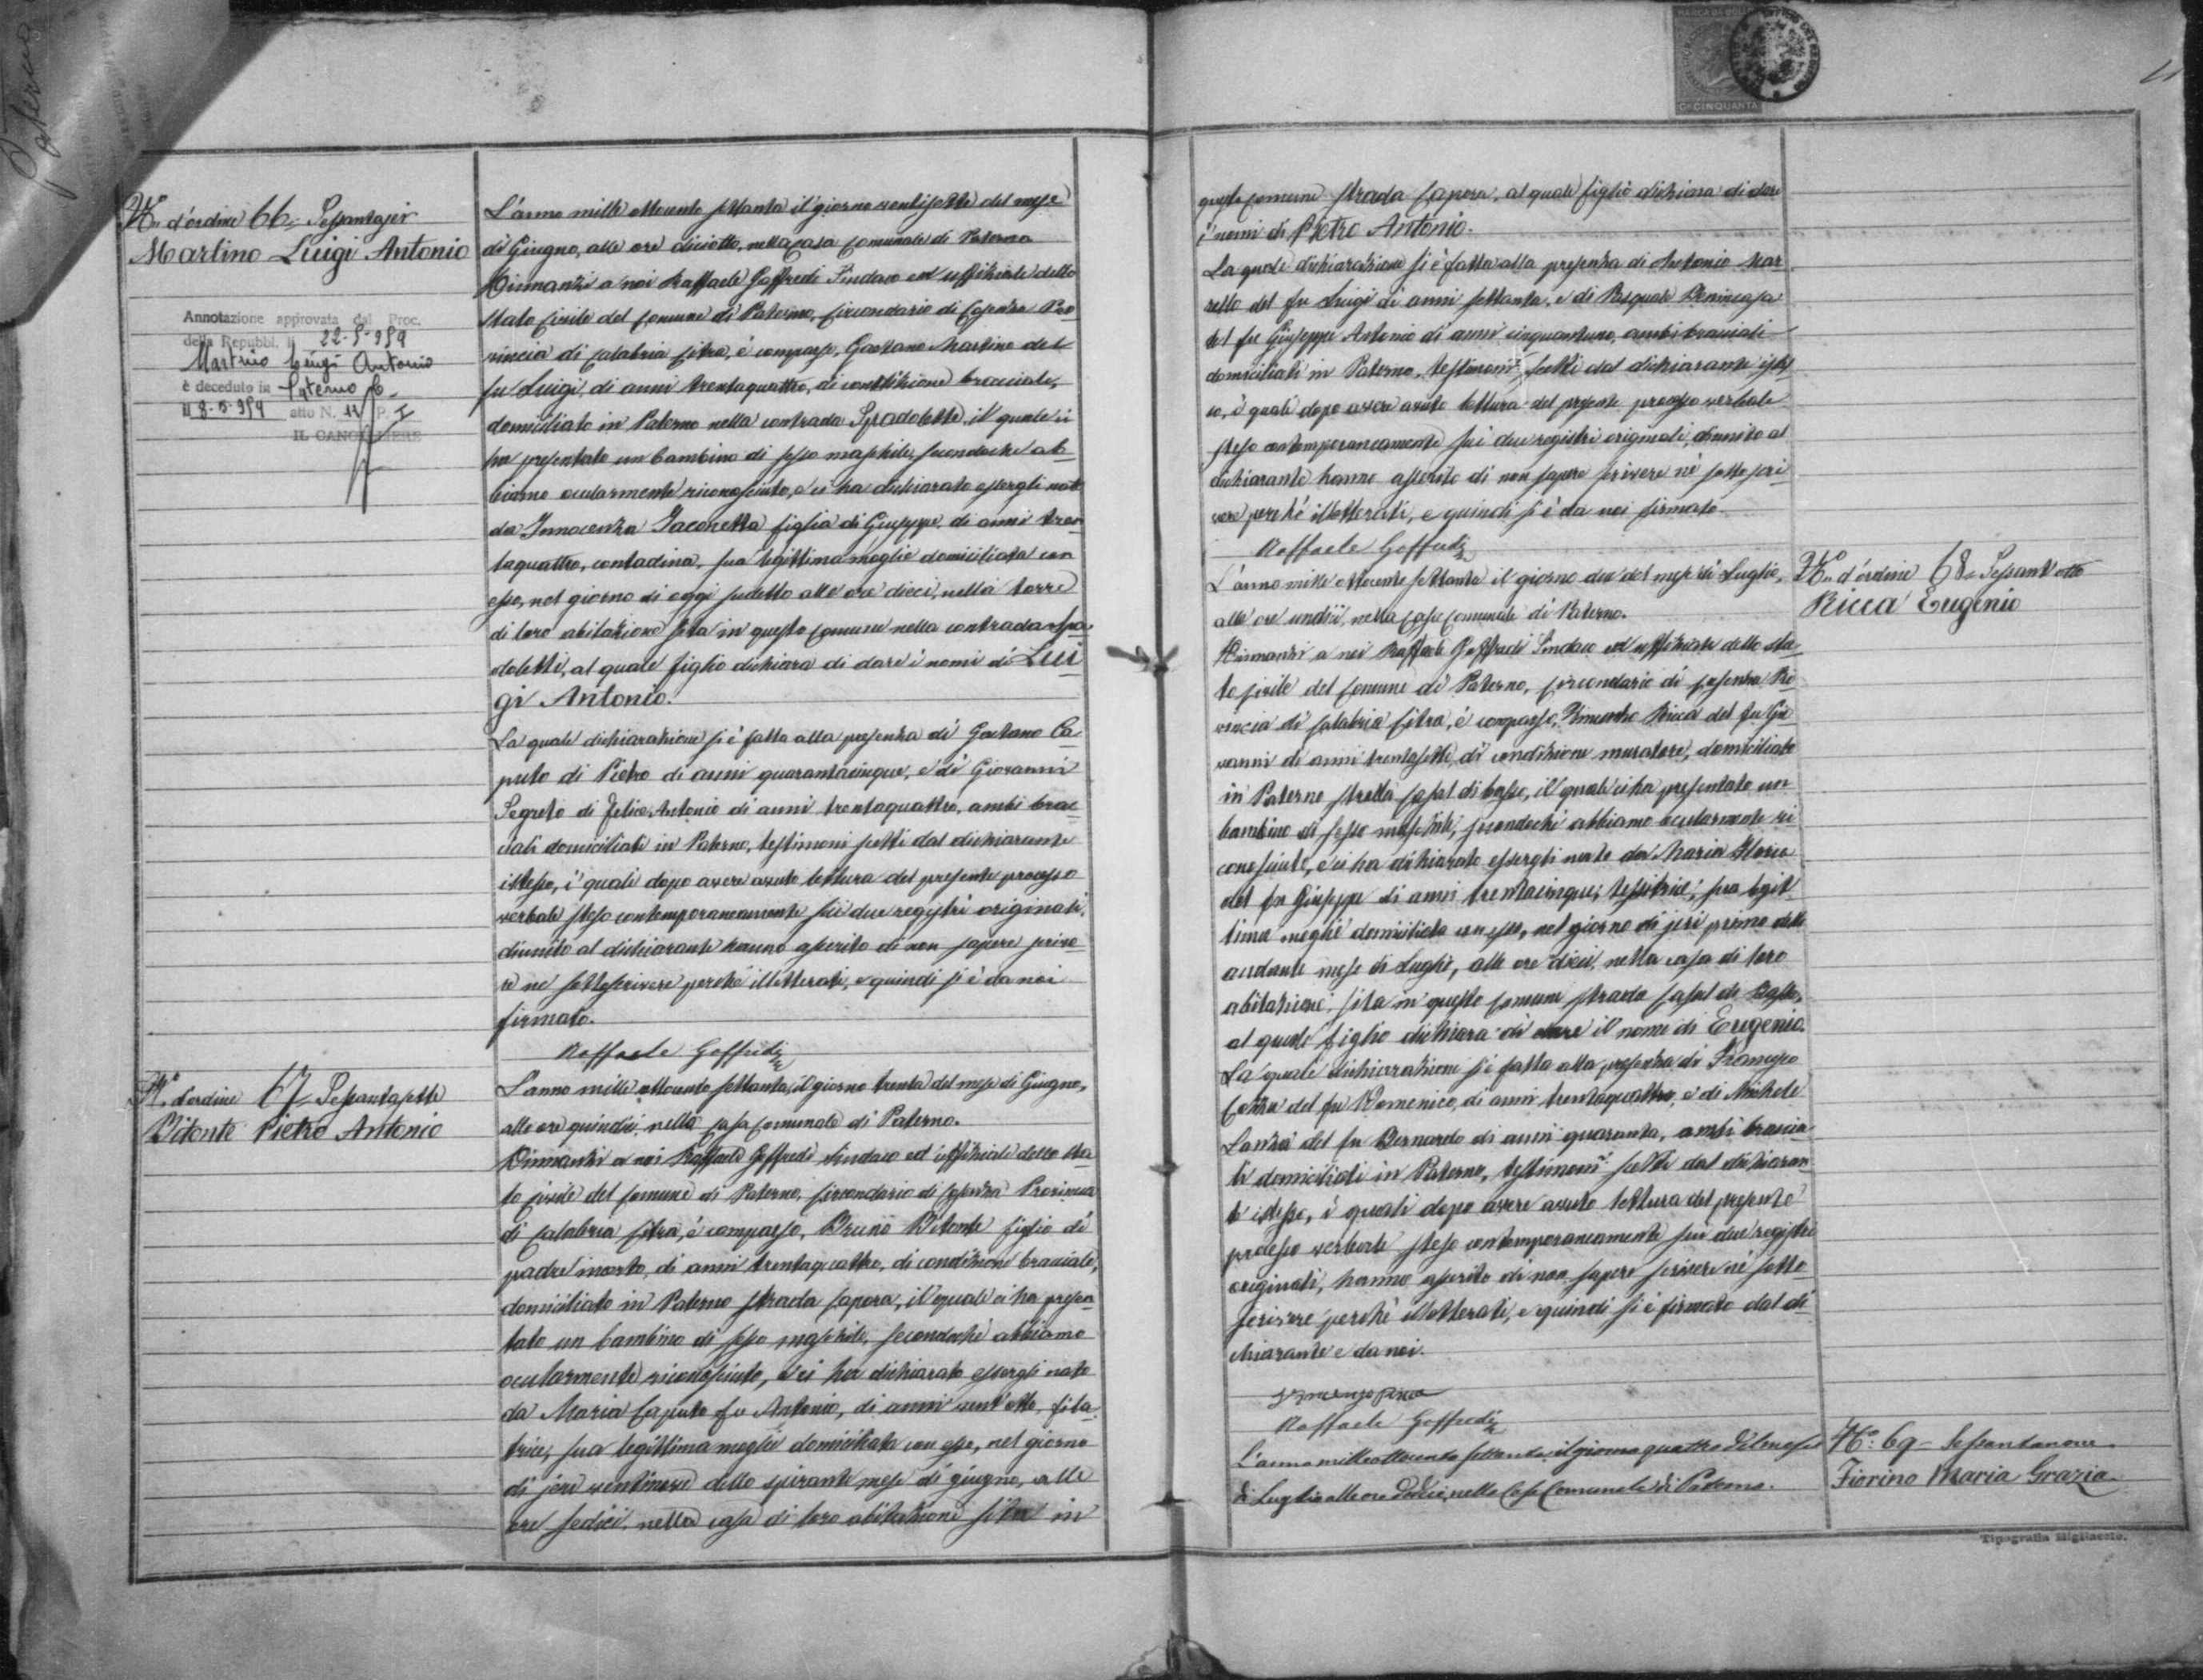 Paterno
N. d'ordine 66, Sessantasei
Martino Luigi Antonio
Annotazione approvata dal Proc.
della Repubbl. il 22-5-959
Martino Luigi Antonio
è deceduto in Paterno C.
il 8-5-959 atto N. 11 P. I
IL CANCELLIERE
L'anno mille ottocento settanta il giorno ventisette del mese
di Giugno, alle ore diciotto, nella casa comunale di Paterno
Dinnanzi a noi Raffaele Goffredi Sindaco ed uffiziale dello
Stato Civile del Comune di Paterno, Circondario di Cosenza Pro
vincia di Calabria Citra, è comparso, Gaetano Martino del
fu Luigi, di anni trentaquattro, di condizione bracciale,
domiciliato in Paterno nella contrada Spadolette, il quale ci
ha presentato un bambino di sesso maschile, secondochè ab
biamo ocularmente riconosciuto, e ci ha dichiarato essergli nato
da Innocenza Jaconetta figlia di Giuseppe, di anni tren
taquattro, contadina, sua legittima moglie domiciliata con
esso, nel giorno di oggi sudetto alle ore dieci, nella torre
di loro abitazione sita in questo comune nella contrada Spa
doletti, al quale figlio dichiara di dare i nomi di Lui
gi Antonio.
La quale dichiarazione si è fatta alla presenza di Gaetano Ca
puto di Pietro di anni quarantacinque, e di Giovanni
Segreto di Felice Antonio di anni trentaquattro, ambi brac
ciali domiciliati in Paterno, testimoni scelti dal dichiarante
istesso, i quali dopo avere avuto lettura del presente processo
verbale steso contemporaneamente sui due registri originali,
diunito al dichiarante hanno asserito di non sapere scrive
re nè sottoscrivere perchè illetterati, e quindi si è da noi
firmato.
Raffaele Goffredi
N. d'ordine 67, Sessantasette
Bitonte Pietro Antonio
L'anno mille ottocento settanta, il giorno trenta del mese di Giugno,
alle ore quindici, nella casa comunale di Paterno.
Dinnanzi a noi Raffaele Goffredi Sindaco ed uffiziale dello Sta
to civile del Comune di Paterno, Circondario di Cosenza Provincia
di Calabria Citra, è comparso, Bruno Bitonte figlio di
padre incerto, di anni trentaquattro, di condizione bracciale,
domiciliato in Paterno strada Capora, il quale ci ha presen
tato un bambino di sesso maschile, secondochè abbiamo
ocularmente riconosciuto, e ci ha dichiarato essergli nato
da Maria Caputo fu Antonio, di anni vent'otto, fila
trice, sua legittima moglie domiciliata con esso, nel giorno
di jeri ventinove dello spirante mese di giugno, alle
ore sedici, nella casa di loro abitazione sita in
MARCA DA BOLLO
Cmi CINQUANTA
11
questo comune strada Capora, al quale figlio dichiara di dare
i nomi di Pietro Antonio.
La quale dichiarazione si è fatta alla presenza di Antonio Mar
rello del fu Luigi di anni settanta, e di Pasquale Benincasa
del fu Giuseppe Antonio di anni cinquantuno, ambi bracciali
domiciliati in Paterno, testimoni scelti dal dichiarante istes
so, i quali dopo avere avuto lettura del presente processo verbale
steso contemporaneamente sui due registri originali, diunito al
dichiarante hanno asserito di non sapere scrivere nè sottoscri
vere perchè illetterati, e quindi si è da noi firmato.
Raffaele Goffredi
N. d'ordine 68, Sessant'otto
Ricca Eugenio
L'anno mille ottocento settanta il giorno due del mese di Luglio,
alle ore undici, nella casa comunale di Paterno.
Dinnanzi a noi Raffaele Goffredi Sindaco ed uffiziale dello sta
to civile del Comune di Paterno, circondario di Cosenza Pro
vincia di Calabria Citra, è comparso, Vincenzo Ricca del fu Gio
vanni di anni trentasette, di condizione muratore, domiciliato
in Paterno strada Casal di basso, il quale ci ha presentato un
bambino di sesso maschile, secondochè abbiamo ocularmente ri
conosciuto, e ci ha dichiarato essergli nato da Maria Florio
del fu Giuseppe di anni trentacinque, tessitrice, sua legit
tima moglie domiciliata con esso, nel giorno di jeri primo dello
andante mese di Luglio, alle ore dieci, nella casa di loro
abitazione, sita in questo comune strada Casal di Basso,
al quale figlio dichiara di dare il nome di Eugenio.
La quale dichiarazione si è fatta alla presenza di Francesco
del fu Domenico, di anni trentaquattro, e di Michele
Lanza del fu Bernardo di anni quaranta, ambi braccia
li domiciliati in Paterno, testimoni scelti dal dichiaran
te istesso, i quali dopo avere avuto lettura del presente
processo verbale steso contemporaneamente sui due registri
originali, hanno asserito di non sapere scrivere nè sotto
scrivere perchè illetterati, e quindi si è firmato dal di
chiarante e da noi.
Vincenzo Ricca
Raffaele Goffredi
N.º 69 - Sessantanove
Fiorino Maria Grazia
L'anno milleottocento settanta, il giorno quattro del mese
di Luglio alle ore dodici, nella Casa Comunale di Paterno.
Tipografia Migliaccio.